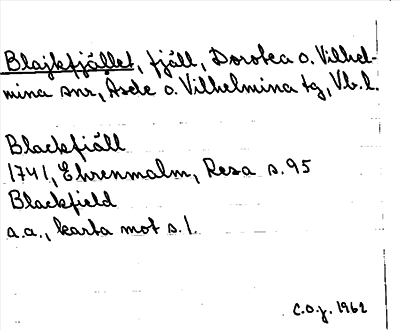 Blajkfjället, fjäll, Dorotea o. Vilhel-
mina snr, Åsele o. Vilhelmina tg, Vb.l.
Blackfiäll
1741, Ehrenmalm, Resa s. 95
Blackfield
a.a., karta mot s. 1.
C.O.J. 1962